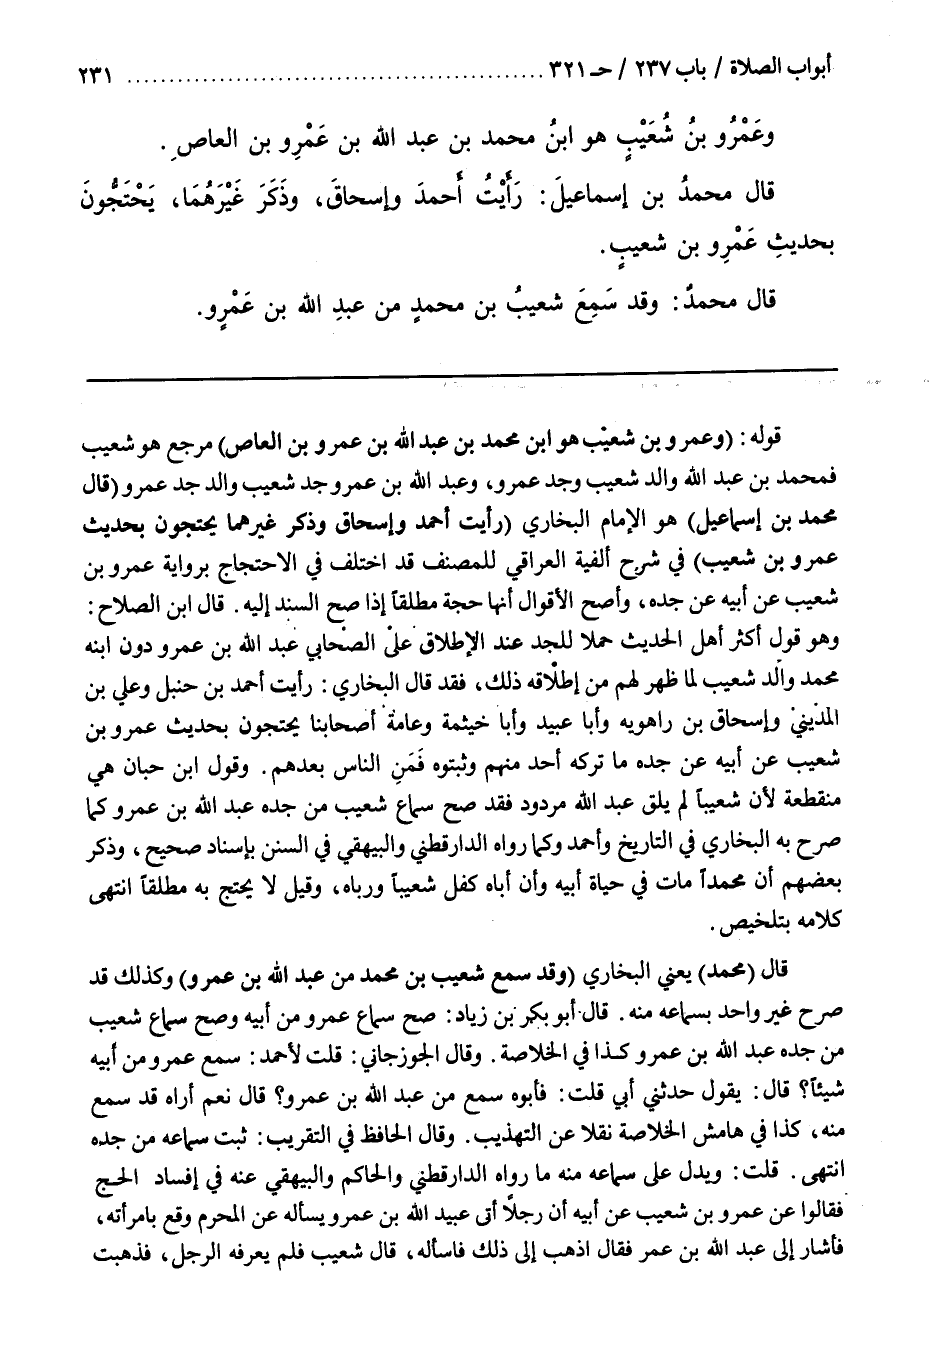 أبواب الصلاة / باب ٢٣٧ / حـ ٣٢١ .................................................. ٢٣١
وعَمْرُو بنُ شُعَيْبٍ هو ابنُ محمد بن عبد الله بن عَمْرِو بن العاصِ.
قال محمدُ بن إسماعيلَ: رَأَيْتُ أَحمدَ وإسحاقَ، وذَكَرَ غَيْرَهُمَا، يَحْتَجُّونَ
بحديثِ عَمْرِو بن شعيبٍ.
قال محمدٌ: وقد سَمِعَ شعيبُ بن محمدٍ من عبدِ الله بن عَمْرٍو.
قوله: (وعمرو بن شعيْب هو ابن محمد بن عبد الله بن عمرو بن العاص) مرجع هو شعيب
فمحمد بن عبد الله والد شعيب وجد عمرو، وعبد الله بن عمرو جد شعيب والد جد عمرو (قال
محمد بن إسماعيل) هو الإمام البخاري (رأيت أحمد وإسحاق وذكر غيرهما يحتجون بحديث
عمرو بن شعيب) في شرح ألفية العراقي للمصنف قد اختلف في الاحتجاج برواية عمرو بن
شعيب عن أبيه عن جده، وأصح الأقوال أنها حجة مطلقاً إذا صح السند إليه. قال ابن الصلاح:
وهو قول أكثر أهل الحديث حملا للجد عند الإطلاق على الصحابي عبد الله بن عمرو دون ابنه
محمد والد شعيب لما ظهر لهم من إطلاقه ذلك، فقد قال البخاري: رأيت أحمد بن حنبل وعلي بن
المديني وإسحاق بن راهويه وأبا عبيد وأبا خيثمة وعامة أصحابنا يحتجون بحديث عمرو بن
شعيب عن أبيه عن جده ما تركه أحد منهم وثبتوه فَمَنِ الناس بعدهم. وقول ابن حبان هي
منقطعة لأن شعيباً لم يلق عبد الله مردود فقد صح سماع شعيب من جده عبد الله بن عمرو كما
صرح به البخاري في التاريخ وأحمد وكما رواه الدارقطني والبيهقي في السنن بإسناد صحيح، وذكر
بعضهم أن محمداً مات في حياة أبيه وأن أباه كفل شعيباً ورباه، وقيل لا يحتج به مطلقاً انتهى
كلامه بتلخيص.
قال (محمد) يعني البخاري (وقد سمع شعيب بن محمد من عبد الله بن عمرو) وكذلك قد
صرح غير واحد بسماعه منه. قال أبو بكر بن زياد: صح سماع عمرو من أبيه وصح سماع شعيب
من جده عبد الله بن عمرو كذا في الخلاصة. وقال الجوزجاني: قلت لأحمد: سمع عمرو من أبيه
شيئاً؟ قال: يقول حدثني أبي قلت: فأبوه سمع من عبد الله بن عمرو؟ قال نعم أراه قد سمع
منه، كذا في هامش الخلاصة نقلا عن التهذيب. وقال الحافظ في التقريب: ثبت سماعه من جده
انتهى. قلت: ويدل على سماعه منه ما رواه الدارقطني والحاكم والبيهقي عنه في إفساد الحج
فقالوا عن عمرو بن شعيب عن أبيه أن رجلًا أتى عبيد الله بن عمرو يسأله عن المحرم وقع بامرأته،
فأشار إلى عبد الله بن عمر فقال اذهب إلى ذلك فاسأله، قال شعيب فلم يعرفه الرجل، فذهبت